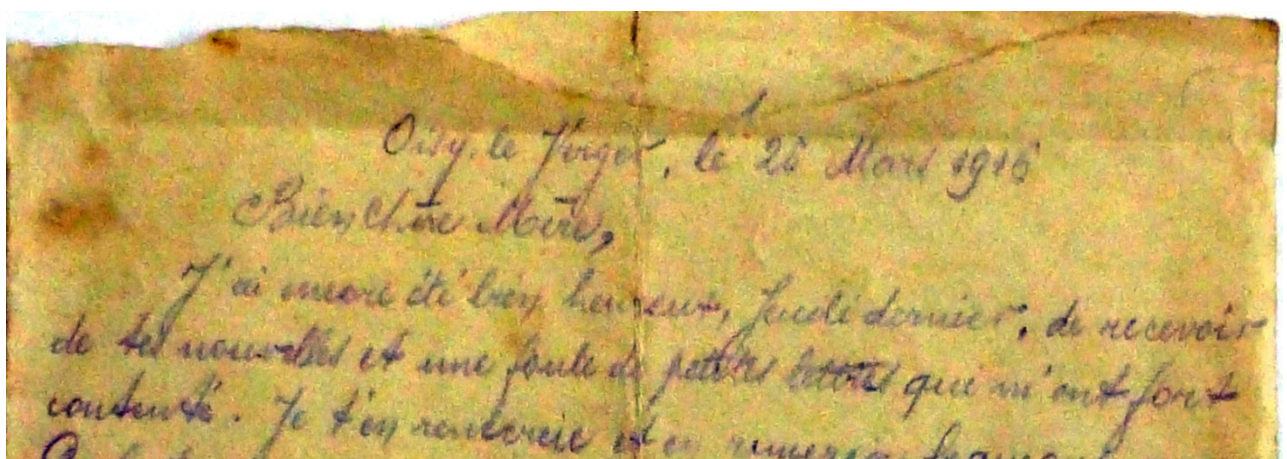 Oisy le Verger, le 26 Mars 1916
Bien Chère Mère,
J'ai encore été bien heureux, Jeudi dernier, de recevoir
de tes nouvelles et une foule de petites lettres qui m'ont fort
contenté. Je t'en remercie et en remercie